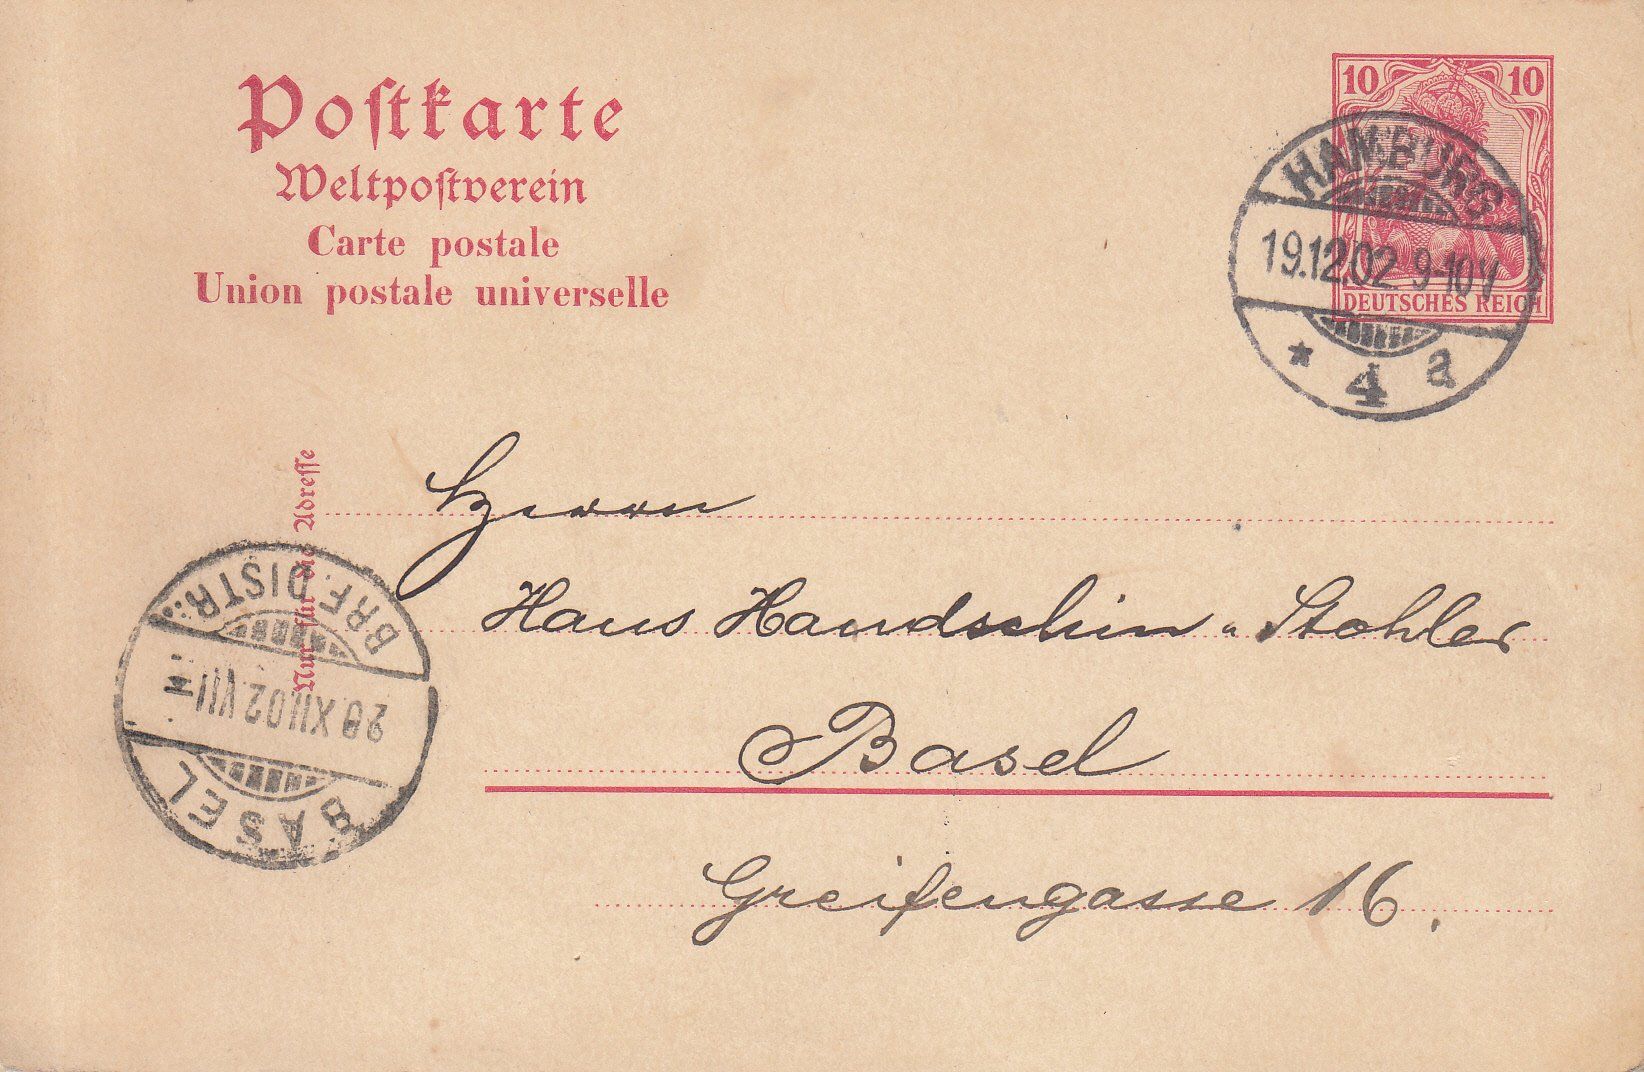 Postkarte
Weltpostverein
Carte postale
Union postale universelle
10 10
DEUTSCHES REICH
HAMBURG
19.12.02 9-10V
* 4 a
Nur für die Adresse
Herrn
Hans Handschin-Stohler
Basel
Greifengasse 16.
BASEL
XII.02.VII
BRF. DISTR.